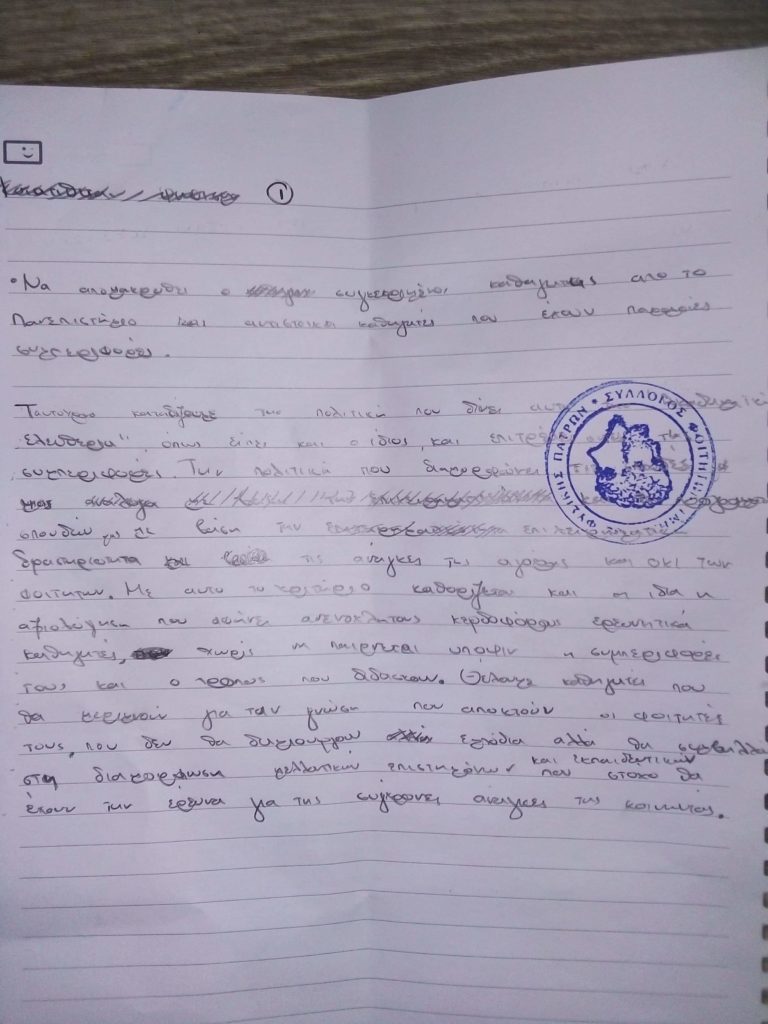 ①
• Να απομακρυνθεί ο συγκεκριμένος καθηγητής από το
Πανεπιστήμιο και αντίστοιχα καθηγητές που έχουν παρόμοιες
συμπεριφορές.
Ταυτόχρονα καταδικάζουμε την πολιτική που δίνει αυτή
ελευθερία", όπως είπε και ο ίδιος, και
συμπεριφορές. Την πολιτική που διαμορφώνει
σπουδών με βάση την
δραστηριότητα και τις ανάγκες της αγοράς και όχι των
φοιτητών. Με αυτό το κριτήριο καθορίζεται και η ίδια η
αξιολόγηση που αφήνει ανενόχλητους κερδοφόρους ερευνητικά
καθηγητές, χωρίς να παίρνεται υπόψιν η συμπεριφορά
τους και ο τρόπος που διδάσκουν. Θέλουμε καθηγητές που
θα μεριμνούν για την γνώση που αποκτούν οι φοιτητές
τους, που δεν θα δημιουργούν εμπόδια αλλά θα συμβάλλουν
στη διαμόρφωση μελλοντικών επιστημόνων και εκπαιδευτικών που στόχο θα
έχουν την έρευνα για της σύγχρονες ανάγκες της κοινωνίας.
ΣΥΛΛΟΓΟΣ ΦΟΙΤΗΤΩΝ ΤΜΗΜ. ΦΥΣΙΚΗΣ ΠΑΤΡΩΝ